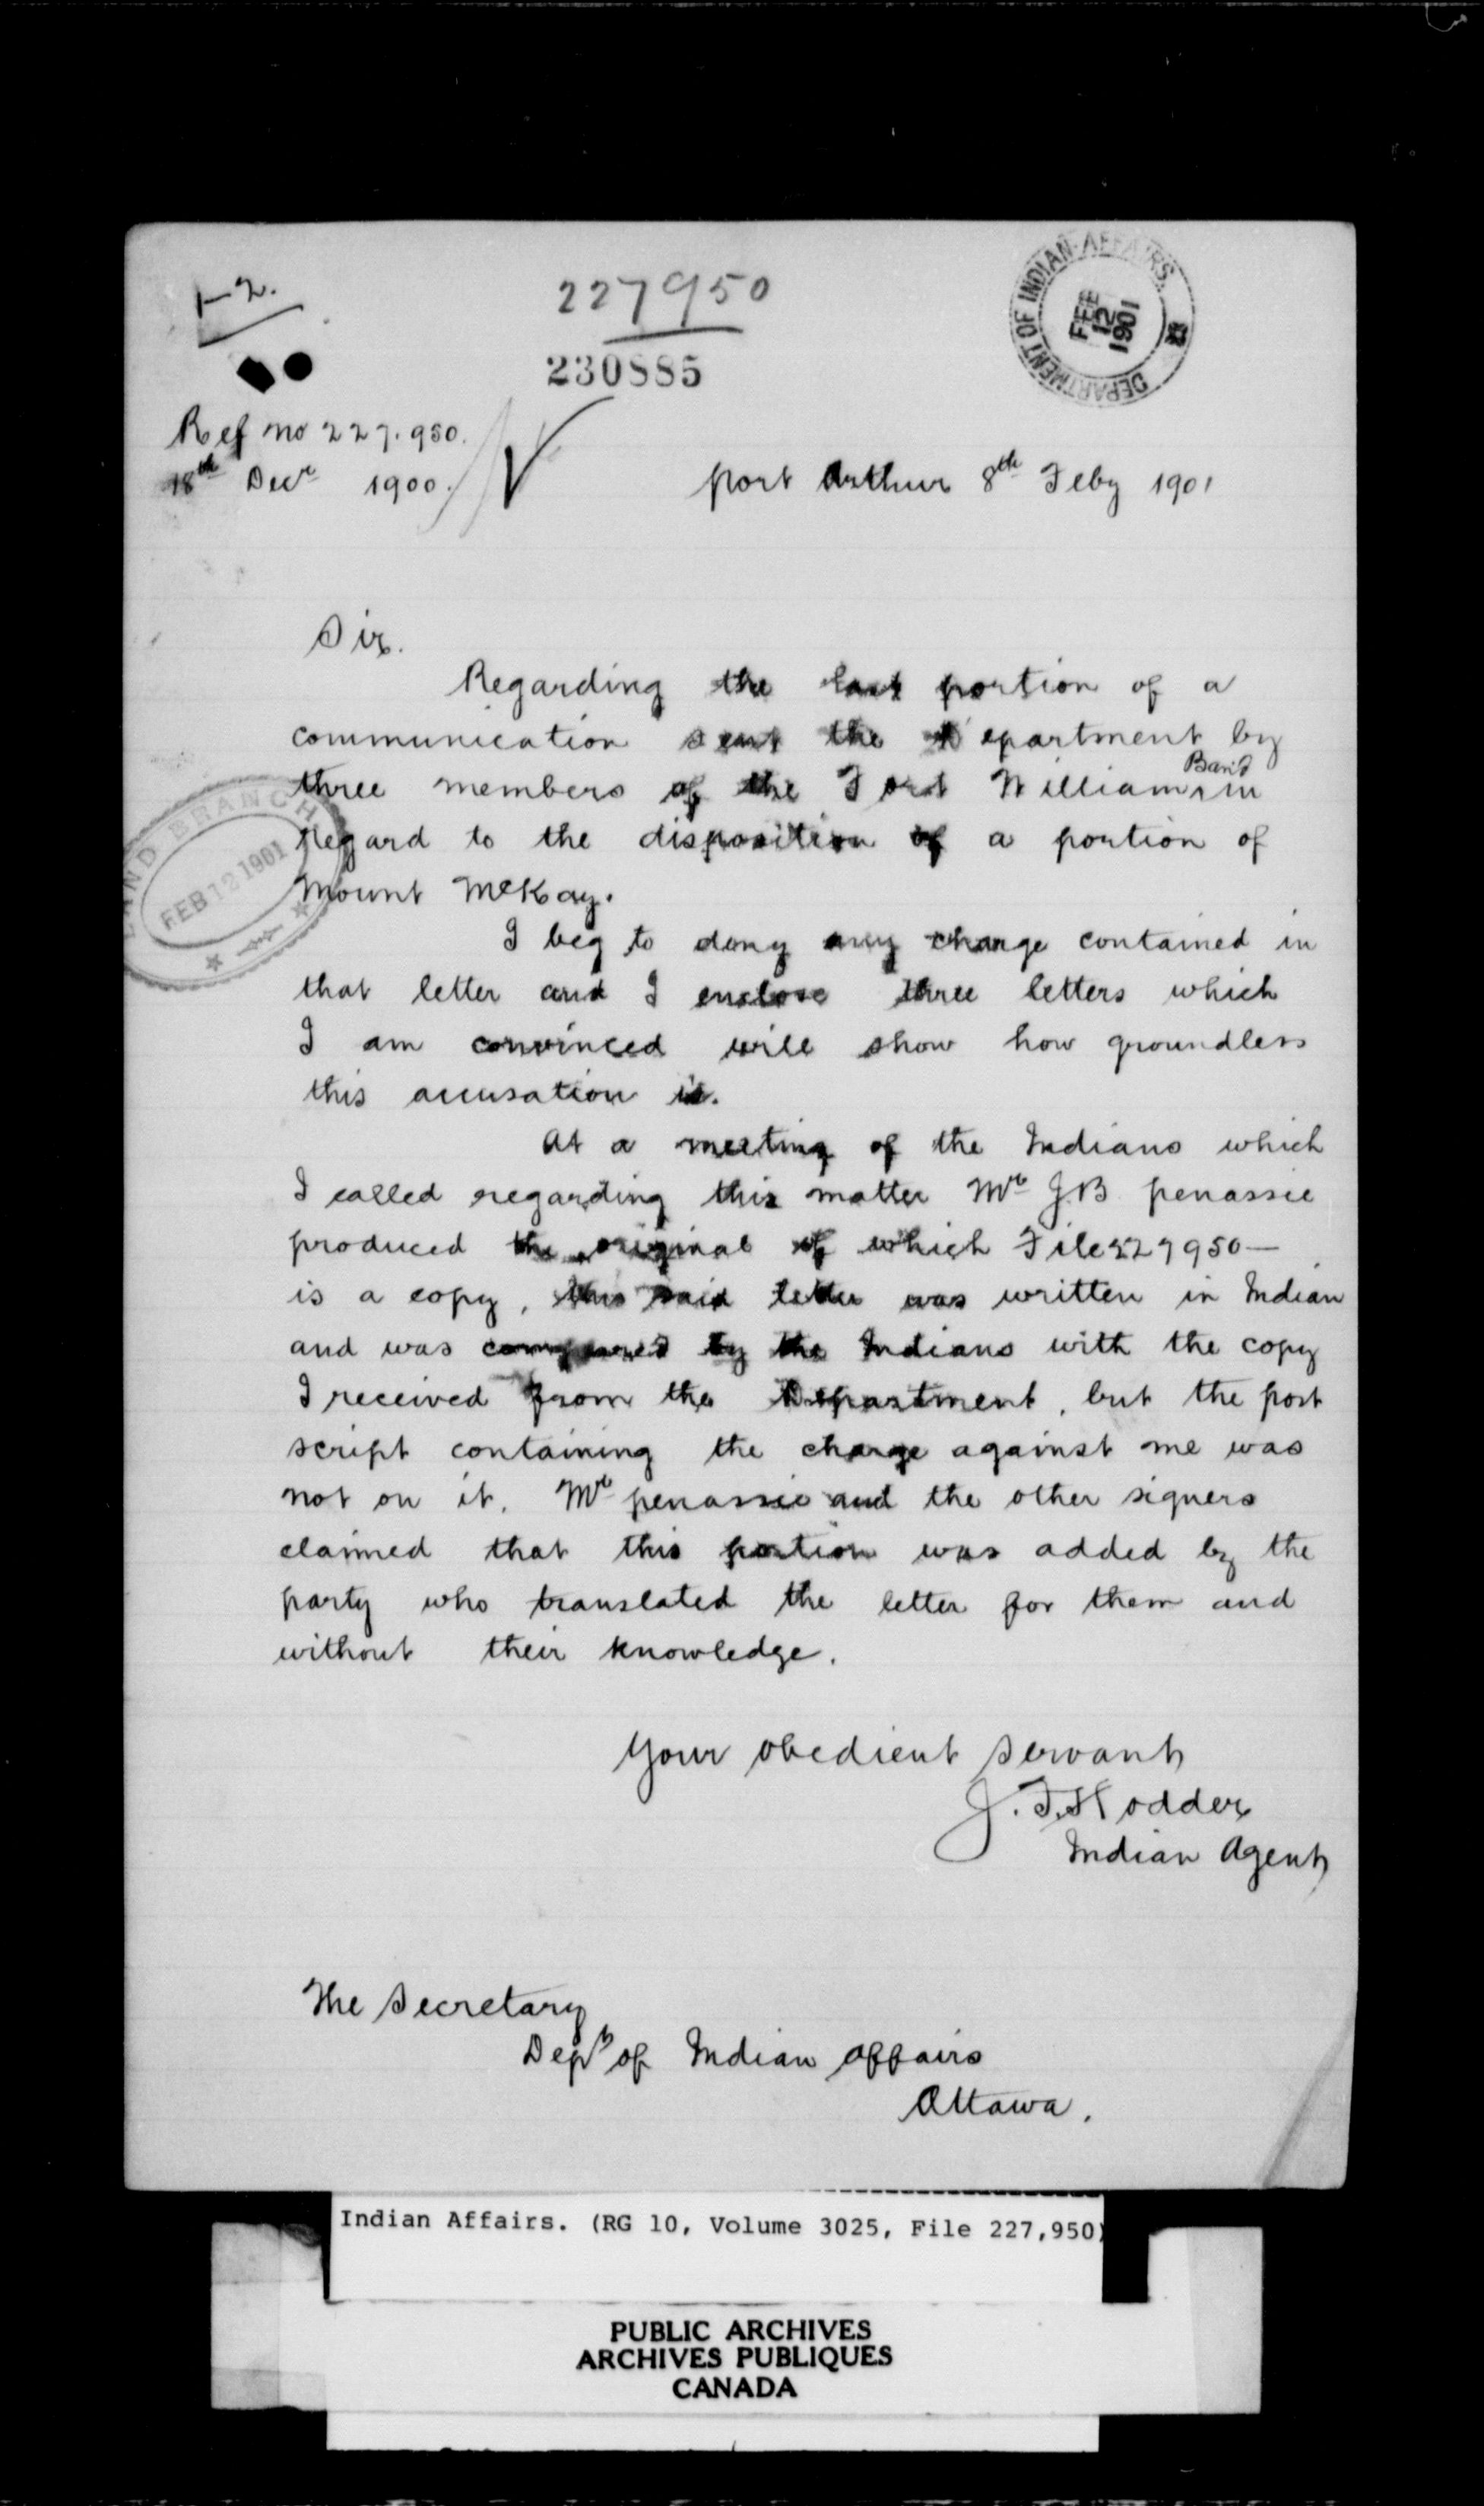 1-2.
227950
230885
DEPARTMENT OF INDIAN AFFAIRS.
FEB
12
1901
Ref no 227.950.
18th Decr 1900.
port Arthur 8th Feby 1901
Sir.
Regarding the last portion of a
communication sent the Department by
three members of the Fort William Band in
regard to the disposition of a portion of
Mount McKay.
LAND BRANCH
FEB 12 1901
I beg to deny any charge contained in
that letter and I enclose three letters which
I am convinced will show how groundless
this accusation is.
At a meeting of the Indians which
I called regarding this matter Mr J.B penassie
produced the original of which File 227950—
is a copy, this said letter was written in Indian
and was compared by the Indians with the copy
I received from the Department, but the post
script containing the charge against me was
not on it. Mr penassie and the other signers
claimed that this portion was added by the
party who translated the letter for them and
without their knowledge.
Your obedient servant
J. F. Hodder
Indian Agent
The Secretary
Dept of Indian Affairs
Ottawa.
Indian Affairs. (RG 10, Volume 3025, File 227,950)
PUBLIC ARCHIVES
ARCHIVES PUBLIQUES
CANADA